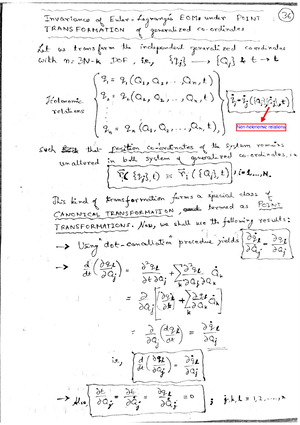 Invariance of Euler-Lagrange's EOMs under POINT
TRANSFORMATION of generalized co-ordinates
36
Let us transform the independent generalized coordinates
with n = 3N-k DOF, i.e., {q_j} → {Q_j} & t → t
Holonomic relations
q_1 = q_1 (Q_1, Q_2, ..., Q_n, t)
q_2 = q_2 (Q_1, Q_2, ..., Q_n, t),
q_n = q_n (Q_1, Q_2, ..., Q_n, t),
non-holonomic relations
Such that position co-ordinates of the system remains
unaltered in both system of generalized co-ordinates, i.e.
r_i ({q_j}, t) ≡ r_i ({Q_j}, t), i=1,...,N.
This kind of transformation forms a special class of
CANONICAL TRANSFORMATION, termed as POINT
TRANSFORMATIONS. Now, we shall use the following results:
→ Using dot-cancellation procedure yields ∂q̇_l/∂Q̇_j = ∂q_l/∂Q_j
→ d/dt (∂q_l/∂Q_j) = ∂²q_l/∂t∂Q_j + Σ_k ∂²q_l/∂Q_k∂Q_j Q̇_k
= ∂/∂Q_j [∂q_l/∂t + Σ_k ∂q_l/∂Q_k Q̇_k]
= ∂/∂Q_j (dq_l/dt) = ∂q̇_l/∂Q_j
i.e., d/dt (∂q_l/∂Q_j) = ∂q̇_l/∂Q_j
→ Also, ∂t/∂Q_j = = 0 ; j,k,l = 1,2,...,n